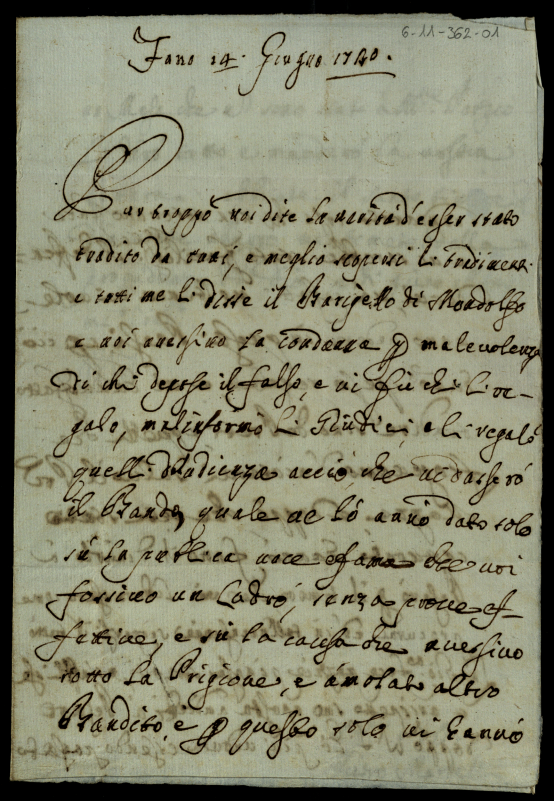 6-11-362-01
Fano 14. Giugno 1740.
Pur troppo voi dite la verità d'esser stato
tradito da tutti, e meglio scopersi li tradimenti
e tutti me li disse il Barigello di Mondolfo
e voi avessivo la condanna p malevolenza
di chi depose il falso, e vi fù chi li re-
galò, mal informò li Giudici, e li regalò
quelli d'udienza acciò che vi dasserò
il Bando, quale ve lò annò dato solo
sù la publica voce e fama che voi
fossivo un Ladrò, senza prove ef-
fettive, e sù la causa che avessivo
rotto la Prigione, e altro
Bandito, e p questo solo vi hannò